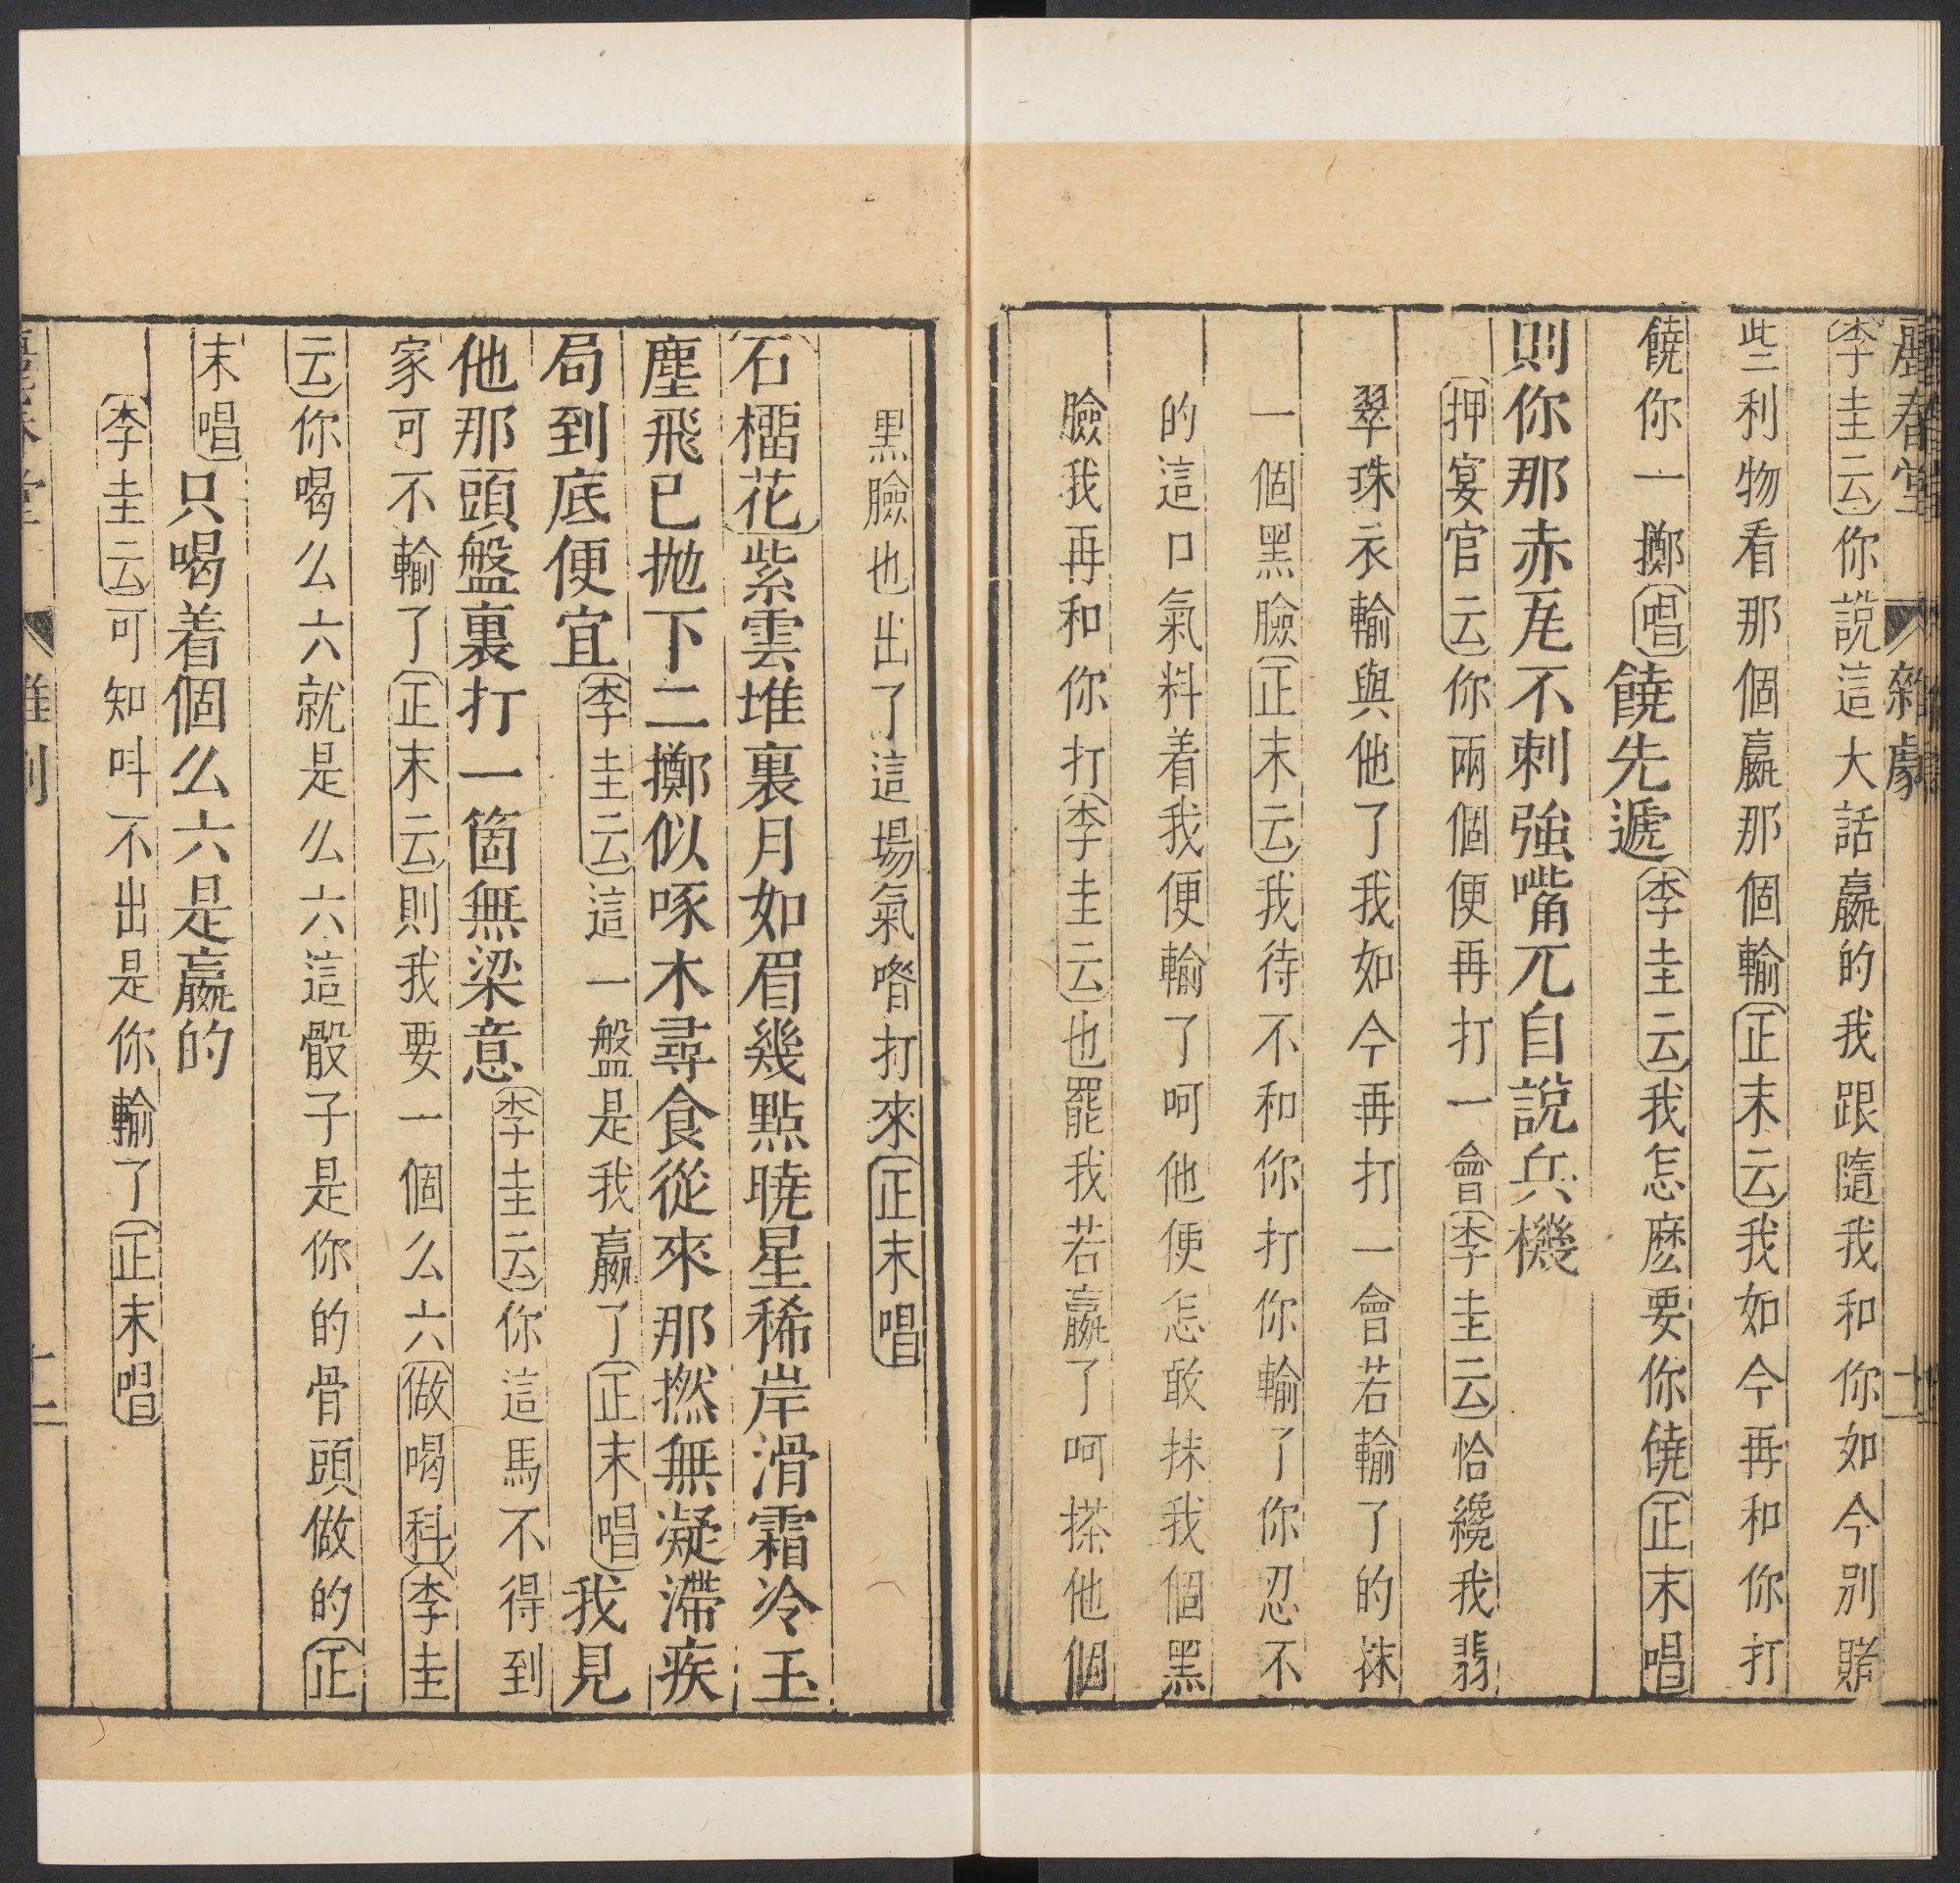 麗春堂 雜劇 十一
李圭云你說這大話贏的我跟隨我和你如今别賭
些利物看那個贏那個輸正末云我如今再和你打
饒你一擲唱饒先遞李圭云我怎麽要你饒正末唱
則你那赤瓦不剌強嘴兀自說兵機
押宴官云你兩個便再打一會李圭云恰纔我翡
翠珠衣輸與他了我如今再打一會若輸了的抹
一個黑臉正末云我待不和你打你輸了你忍不
的這口氣料着我便輸了呵他便怎敢抹我個黑
臉我再和你打李圭云也罷我若贏了呵搽他個
黑臉也出了這場氣喒打來正末唱
石榴花紫雲堆裏月如眉幾點曉星稀岸滑霜冷玉
塵飛已抛下二擲似啄木尋食從來那撚無凝滯疾
局到底便宜李圭云這一盤是我贏了正末唱我見
他那頭盤裏打一箇無梁意李圭云你這馬不得到
家可不輸了正末云則我要一個么六做喝科李圭
云你喝么六就是么六這骰子是你的骨頭做的正
末唱只喝着個么六是贏的
李圭云可知呌不出是你輸了正末唱